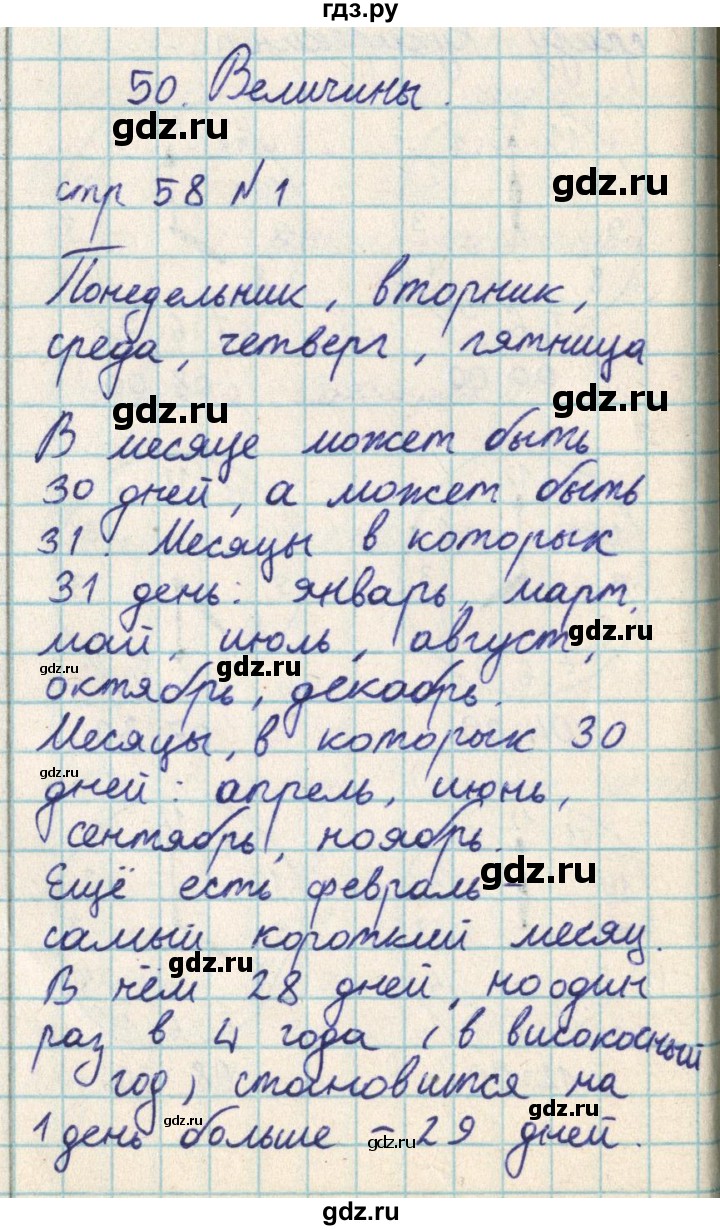 гдз.ру
50. Величины.
gdz.ru
gdz.ru
стр 58 № 1
Понедельник, вторник,
среда, четверг, пятница
gdz.ru
gdz.ru
В месяце может быть
30 дней, а может быть
31. Месяцы в которых
31 день: январь, март,
gdz.ru
май, июль, август,
gdz.ru
gdz.ru
октябрь, декабрь.
Месяцы, в которых 30
gdz.ru
дней: апрель, июнь,
сентябрь, ноябрь.
gdz.ru
Ещё есть февраль -
самый короткий месяц.
gdz.ru
В нём 28 дней, но один
раз в 4 года (в високосный
год) становится на
gdz.ru
gdz.ru
1 день больше - 29 дней.
gdz.ru
gdz.ru